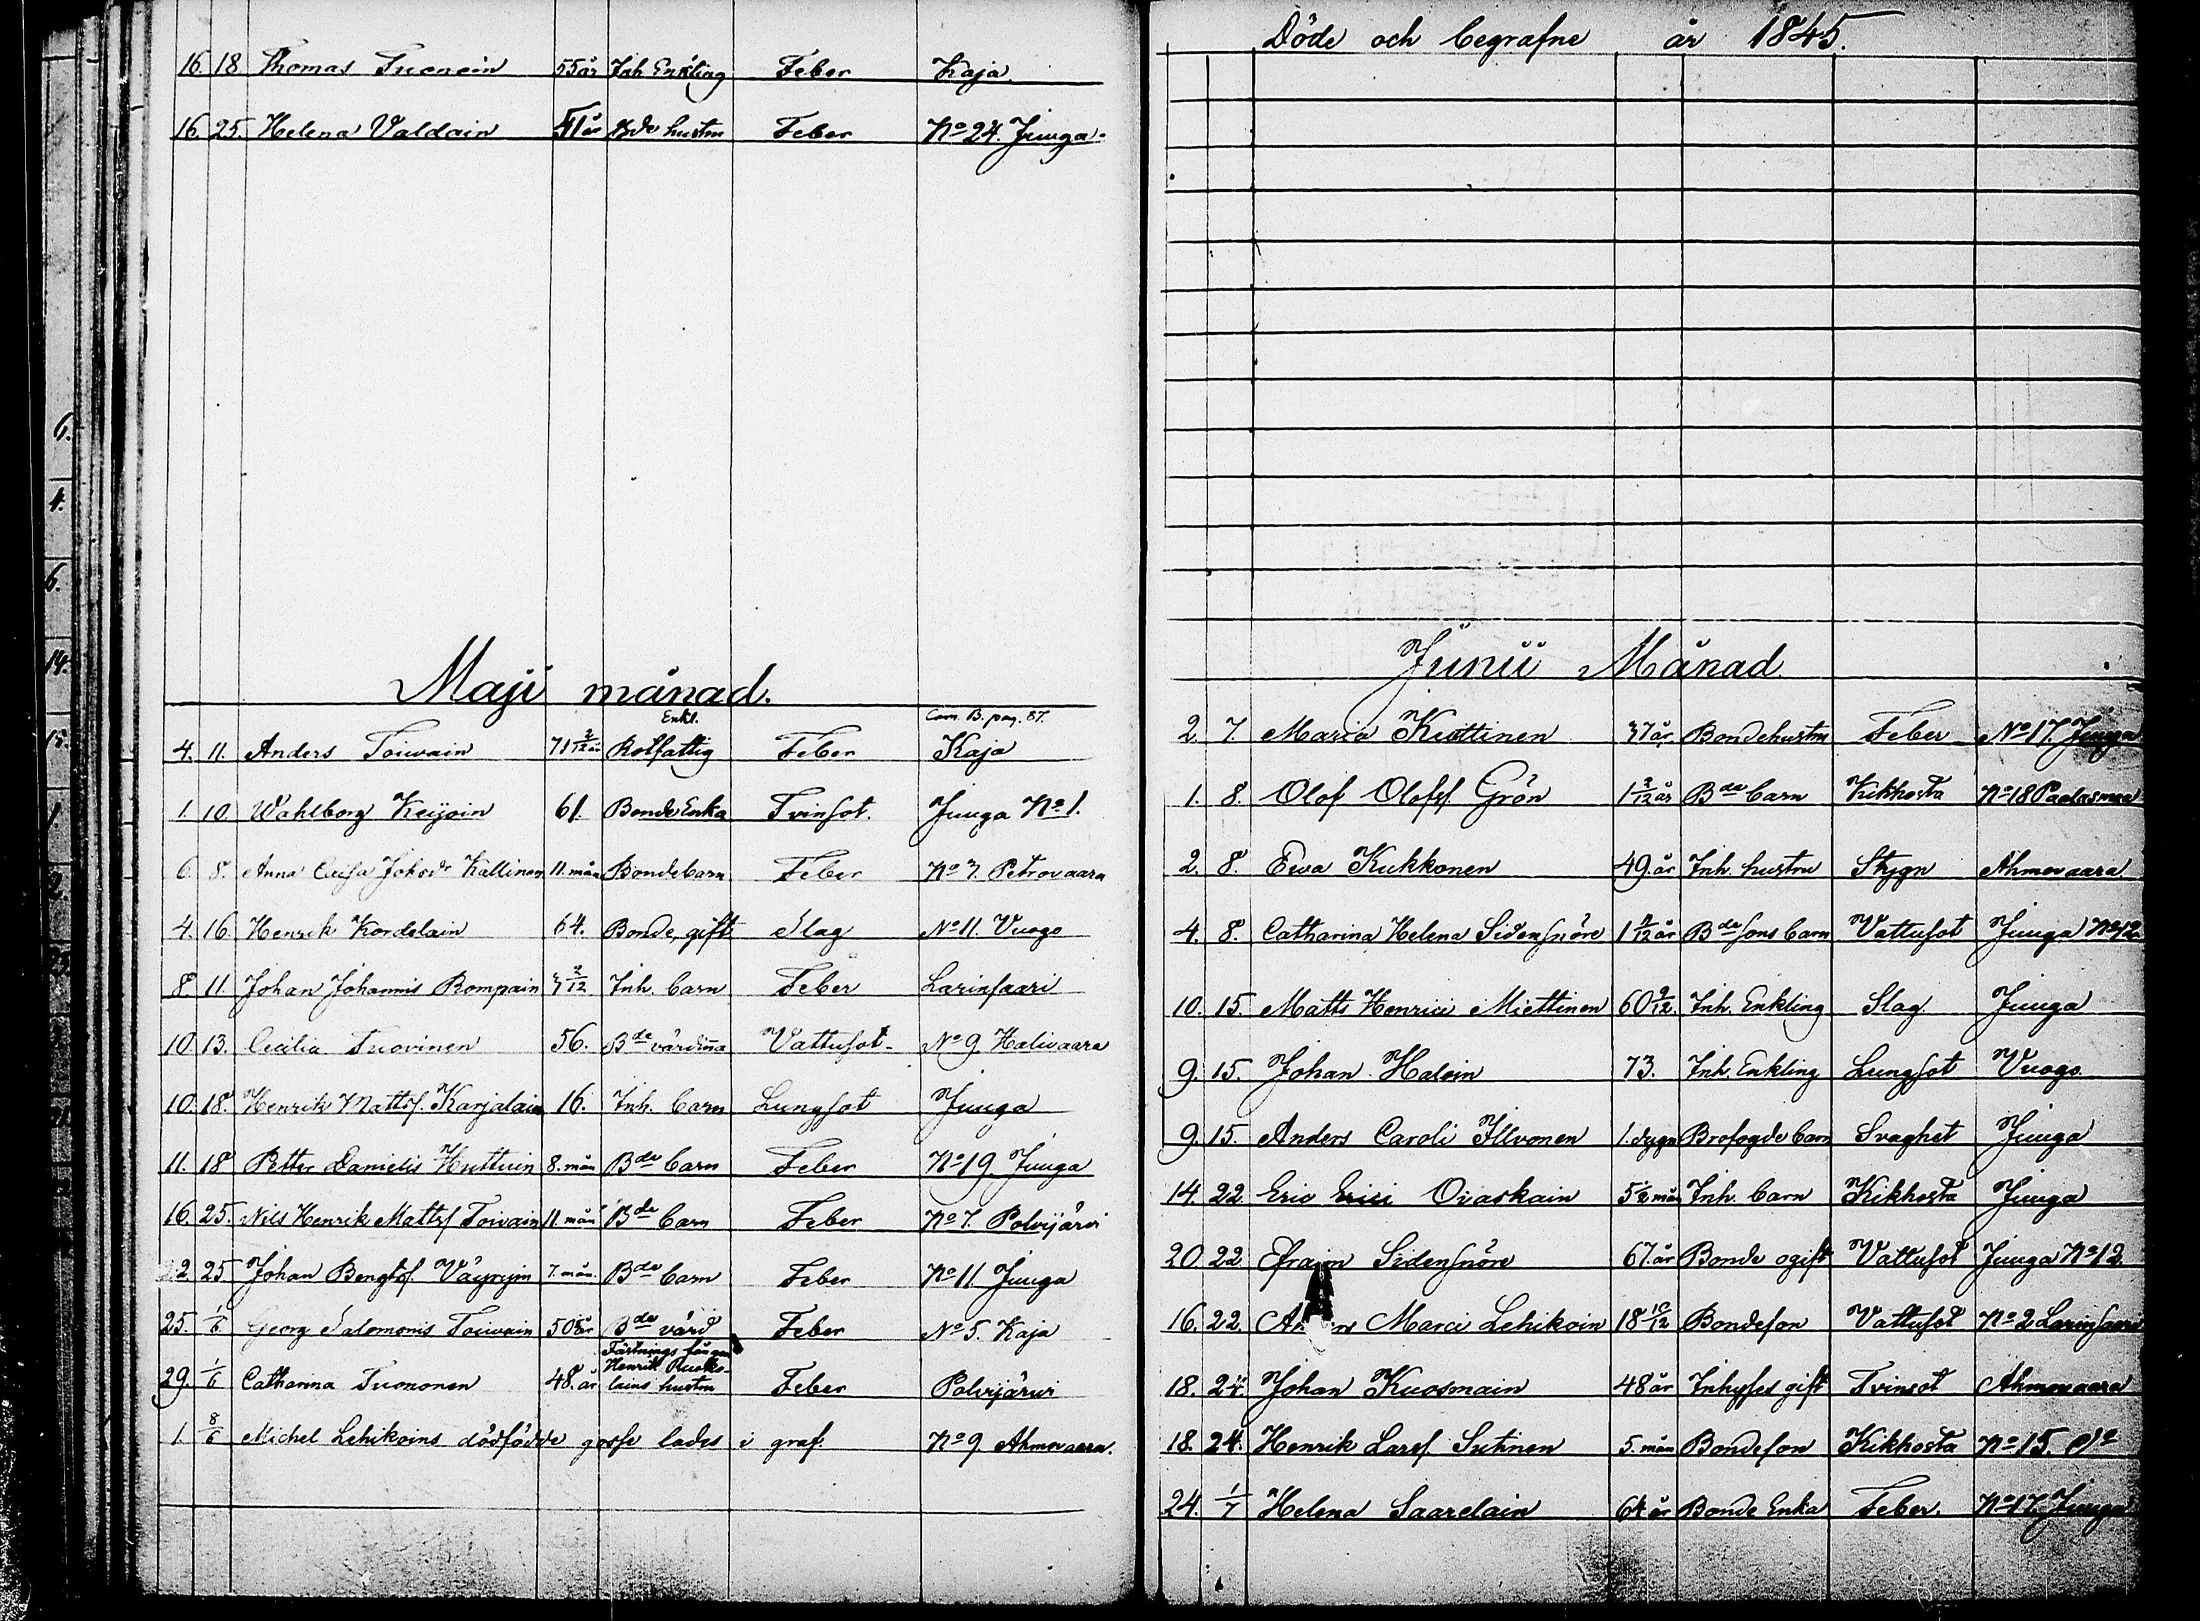 16. 18 Thomas Tuenein 55 år Inh. Enkling Feber Kaja.
16. 25. Helena Valdain 51 år Bde hustru Feber No 24. Juuga.
Maji månad.
Enkl. Com. B. pag. 87.
4. 11. Anders Toivain 71 2/12 år Rotfattig Feber Kaja
1. 10. Wahlborg Keijoin 61. Bonde Enka Tvinsot. Juuga No 1.
6. 8. Anna Johsdr Kallinen 11. mån Bondebarn Feber No 3. Petrovaara
4. 16. Henrik Kordelain 64. Bonde, gift Slag No 11. Vuogo
8. 11 Johan Johannis Rompain 3 2/12 Inh. barn Feber Larinsaari
10. 13. Cecilia Tuovinen 56. Bde värdinna Vattusot No 9. Halivaara
10. 18. Henrik Mattss. Karjalain 16. Inh. barn Lungsot Juuga
11. 18 Petter Danielis Huttuin 8. mån Bde barn Feber No 19. Juuga
16. 25. Nils Henrik Mattss Toivain 11. mån Bde barn Feber No 7. Polvijärvi
22. 25 Johan Bengtss. Väyryin 7. mån. Bde barn Feber No 11. Juuga
25. 1/6 Georg Salomonis Toivain 50 år Bde värd Feber No 5. Kaja
Fästnings fången
Henrik Ruoko-
29. 1/6 Catharina Tuononen 48. år lains hustru Feber Polvijärvi
1. 8/6 Michel Lehikoins dödfödde gosse lades i graf. No 9 Ahmovaara.
Döde och begrafne år 1845.
Junii Månad.
2. 7. Maria Kuittinen 37 år Bondehustru Feber No 17. Juuga
1. 8. Olof Olofss. Grön 1 3/12 år Bde barn Kikhosta No 18 Paalasmaa
2. 8. Ewa Kukkonen 49. år Inh. hustru Stygn Ahmovaara
4. 8. Catharina Helena Sidensnöre 1 11/12 år Bde sons barn Vattusot Juuga No 12.
10. 15. Matts Henrici Miettinen 60 9/12. Inh. Enkling Slag Juuga
9. 15. Johan Haloin 73. Inh. Enkling Lungsot Vuogo
9. 15. Anders Caroli Illvonen 1. dygn Brofogde barn Svaghet Juuga
14. 22. Eric Erici Ovaskain 5 1/2 mån Inh. barn Kikhosta Juuga
20. 22. Efraim Sidensnöre 67. år Bonde ogift Vattusot Juuga No 12.
16. 22. Marci Lehikoin 18 10/12 Bondeson Vattusot No 2 Larinsaari
18. 24. Johan Kuosmain 48 år Inhyses gift Tvinsot Ahmovaara
18. 24. Henrik Larss. Sutinen 5. mån Bondeson Kikhosta No 15. do
24. 1/7 Helena Saarelain 64 år Bonde Enka Feber. No 17. Juuga
6.
4.
6.
14.
15.
1.